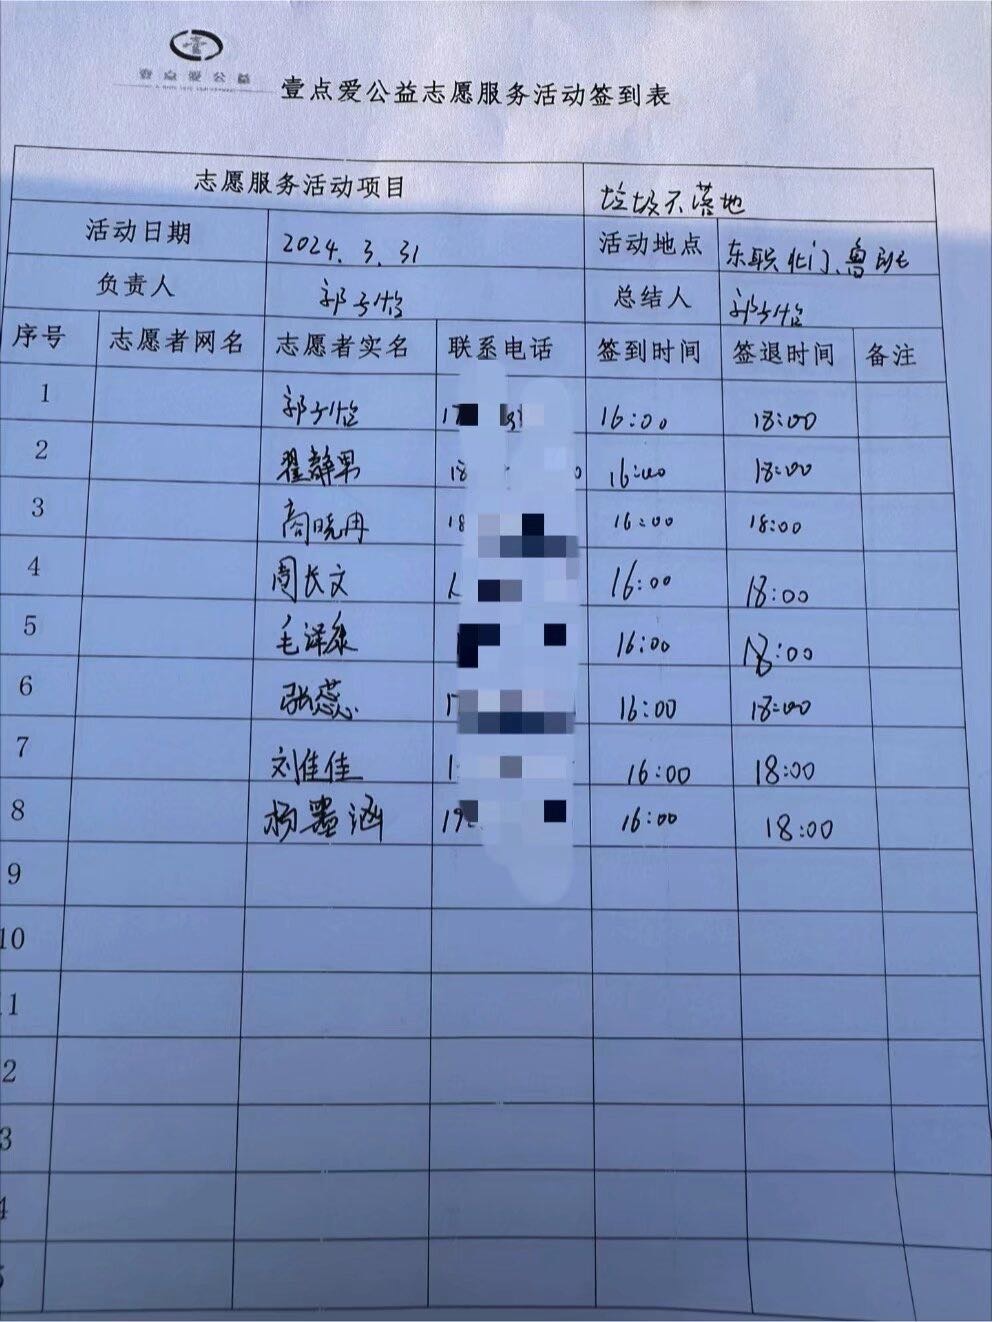 壹点爱公益
壹点爱公益志愿服务活动签到表
志愿服务活动项目 垃圾不落地
活动日期 2024.3.31 活动地点 东职北门、鲁班
负责人 郭子怡 总结人 郭子怡
序号 志愿者网名 志愿者实名 联系电话 签到时间 签退时间 备注
1 郭子怡 17 16:00 18:00
2 翟静男 18 0 16:00 18:00
3 商晓冉 18 16:00 18:00
4 周长文 1 16:00 18:00
5 毛泽康 16:00 18:00
6 张蕊 1 16:00 18:00
7 刘佳佳 1 16:00 18:00
8 杨墨涵 19 16:00 18:00
9
10
11
2
3
4
5